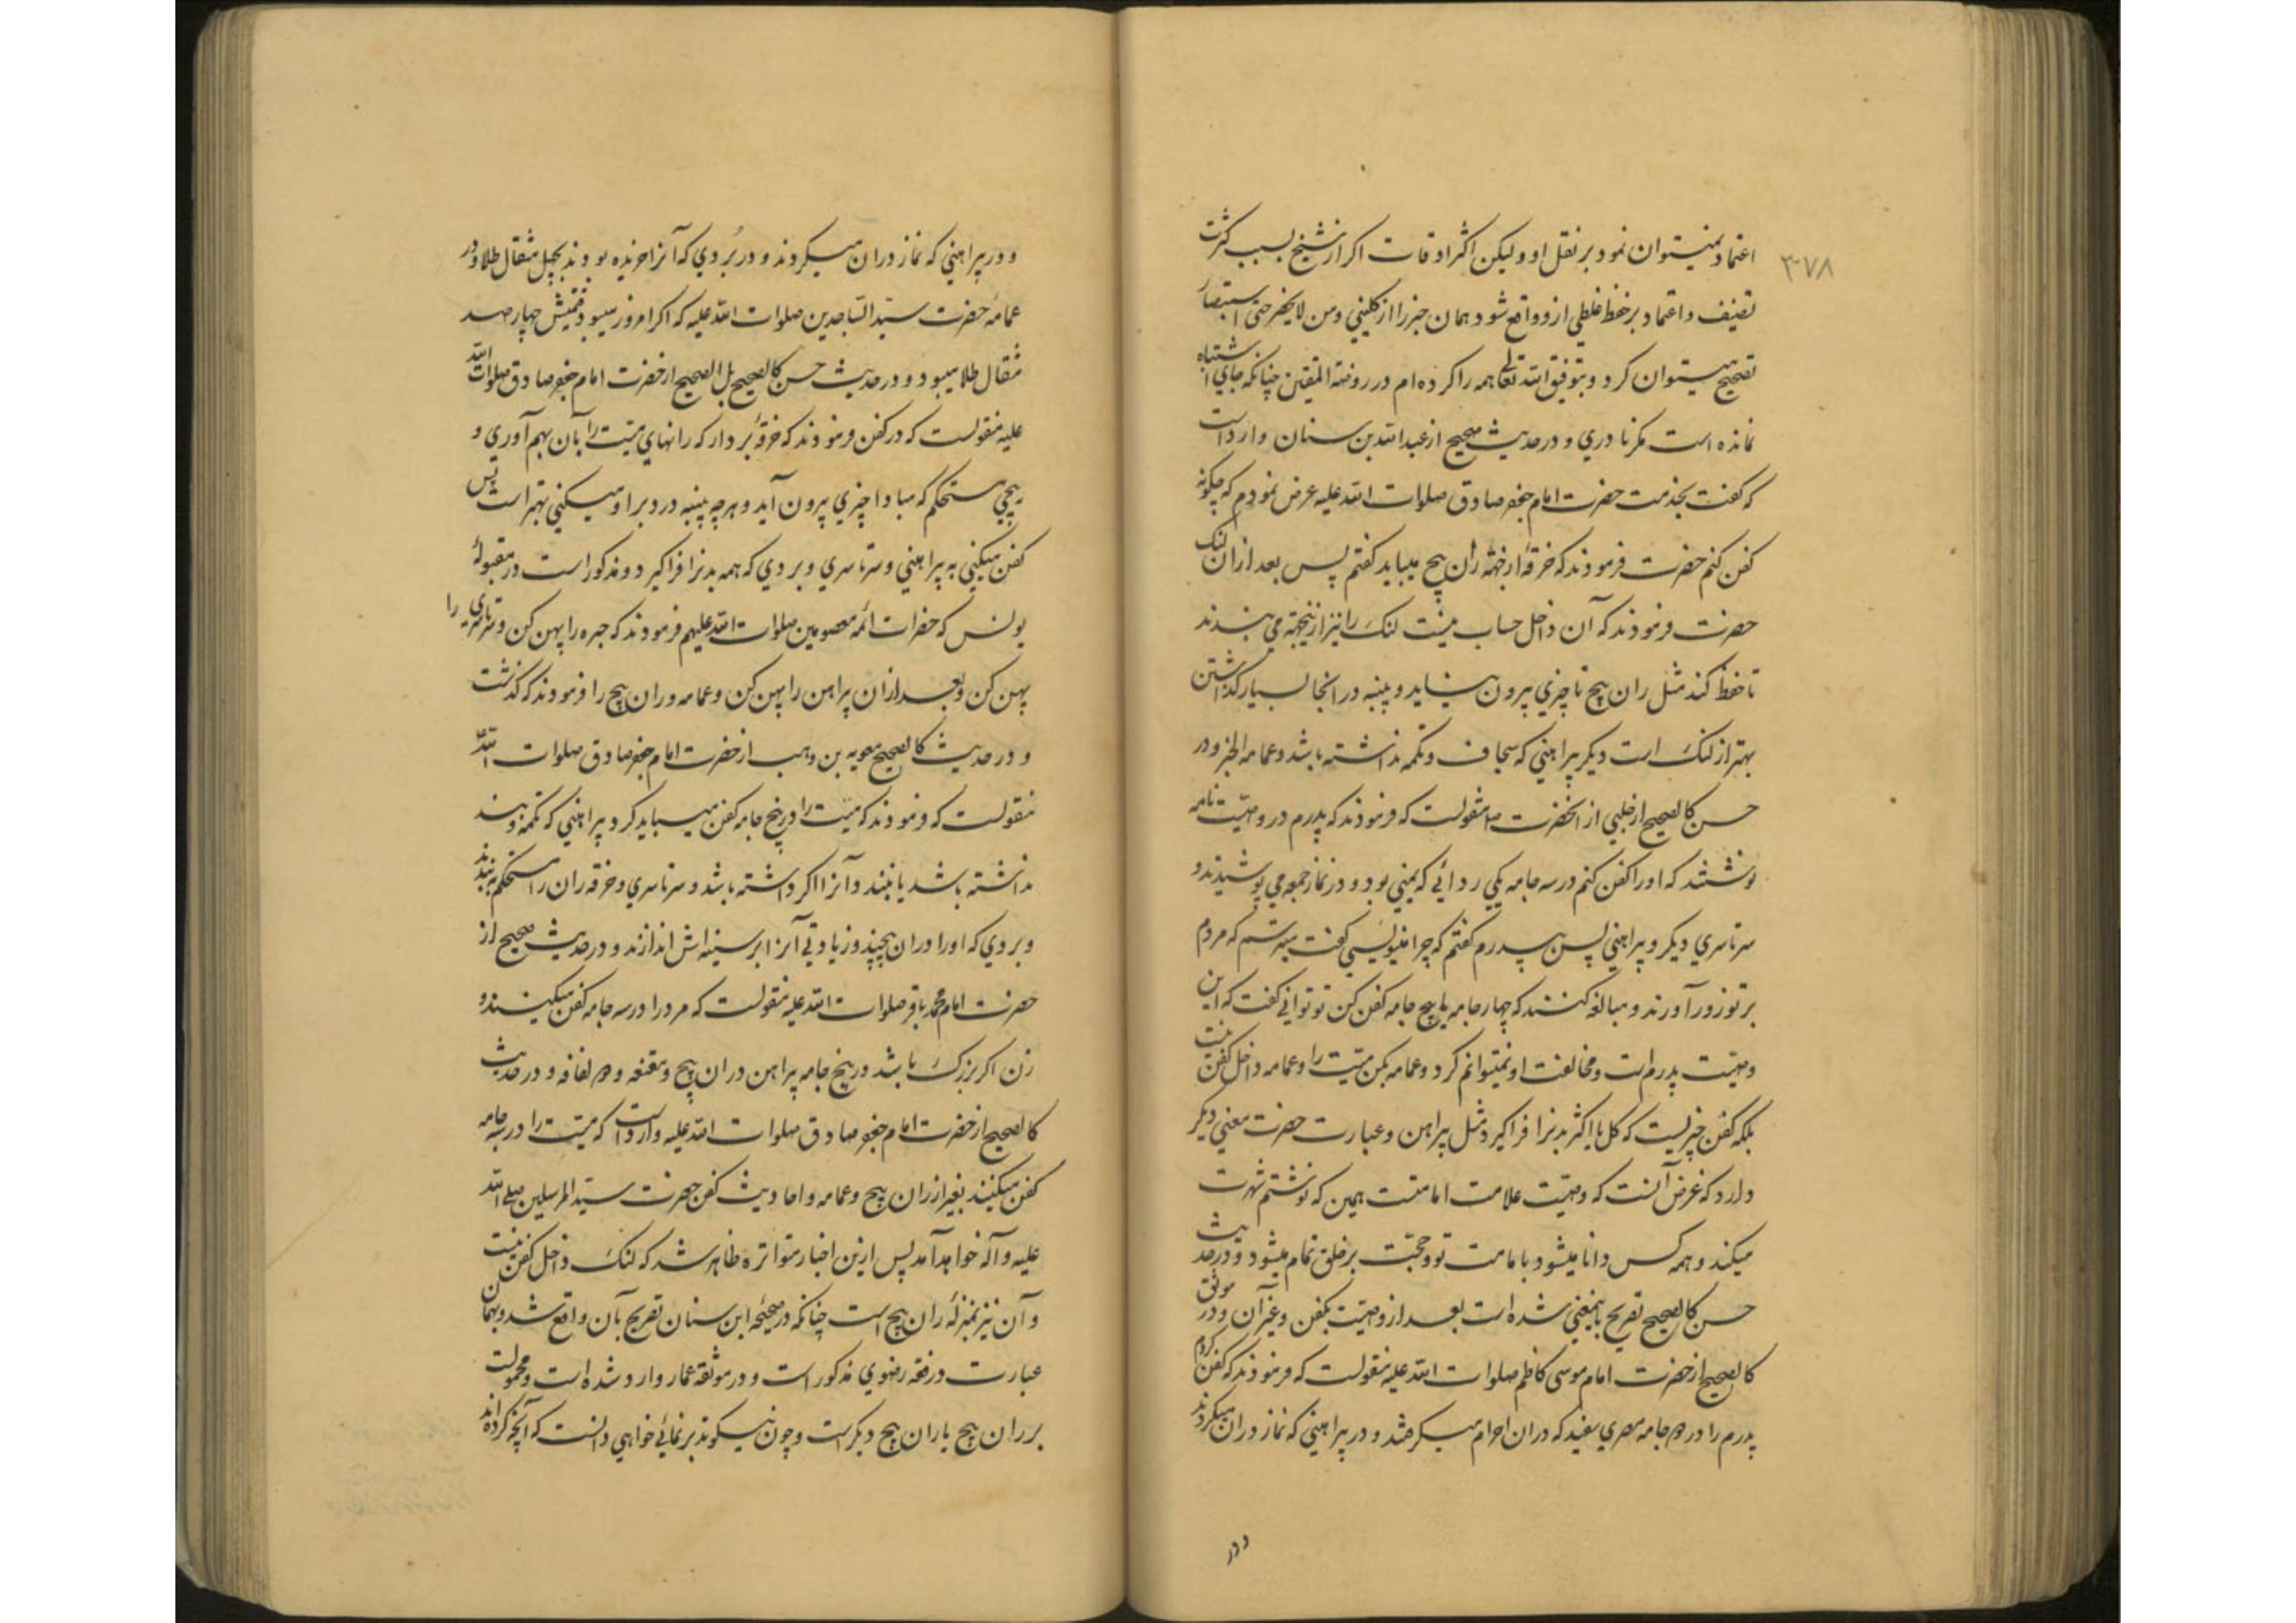 ۳۷۸
اعتماد نمیتوان نمود بر نقل او و لیکن اکثر اوقات اکر از شیخ بسبب کثرت
تصنیف و اعتماد بر حفظ غلطی ازو واقع شود همان خبر را از کلینی و من لا یحضر حتی استبصار
تصحیح میتوان کرد و بتوفیق الله تعالی همه را کرده‌ام در روضة المتقین چنانکه جای اشتباه
نمانده است مکر نادری و در حدیث صحیح از عبدالله بن سنان وارد است
که کفت بخدمت حضرت امام جعفر صادق صلوات الله علیه عرض نمودم که چکونه
کفن کنم حضرت فرمودند که خرقهٔ از جهة ران پیچ میباید کفتم پس بعد از ان لنک
حضرت فرمودند که آن داخل حساب نیست لنک را نیز ازینجهة می بندند
تا حفظ کند مثل ران پیچ تا چیزی بیرون نیاید و پنبه در انجا بسیار کذاشتن
بهتر از لنک است دیکر پیراهنی که سجاف و تکمه نداشته باشد و عمامه الخبر و در
حسن کالصحیح از حلبی از انحضرت ص منقولست که فرمودند که پدرم در وصیت نامه
نوشتند که او را کفن کنم در سه جامه یکی ردائی که یمنی بود و در نماز جمعه می پوشیدند و
سرتاسری دیکر و پیراهنی پس بپدرم کفتم که چرا مینویسی کفت میترسم که مردم
بر تو زور آورند و مبالغه کنند که چهار جامه یا پنج جامه کفن کن تو توانی کفت که این
وصیت پدرم است و مخالفت او نمیتوانم کرد و عمامه بکن میت را و عمامه داخل کفن نیست
بلکه کفن چیزیست که کل یا اکثر بدنرا فرا کیرد مثل پیراهن و عبارت حضرت معنی دیکر
دارد که غرض آنست که وصیت علامت امامتست همین که نوشتم شهرت
میکند و همه کس دانا میشود بامامت تو و حجت بر خلق تمام میشود و در حدیث
حسن کالصحیح تصریح باینمعنی شده است بعد از وصیت بکفن و غیر آن و در موثق
کالصحیح از حضرت امام موسی کاظم صلوات الله علیه منقولست که فرمودند که کفن کردم
پدرم را در دو جامه مصری سفید که دران احرام میکرفتند و در پیراهنی که نماز دران میکردند
و در
و در پیراهنی که نماز دران میکردند و در بُردی که آنرا خریده بودند بچهل مثقال طلا و در
عمامه حضرت سید الساجدین صلوات الله علیه که اکر امروز میبود قیمتش چهار صد
مثقال طلا میبود و در حدیث حسن کالصحیح بل الصحیح از حضرت امام جعفر صادق صلوات الله
علیه منقولست که در کفن فرمودند که خرقهٔ بردار که رانهای میت را بآن بهم آوری و
پیچی مستحکم که مبادا چیزی بیرون آید و هرچه پنبه در دبر او میکنی بهتر است پس
کفن میکنی به پیراهنی و سرتاسری و بردی که همه بدنرا فرا کیرد و مذکور است در مقبولهٔ
یونس که حضرات ائمه معصومین صلوات الله علیهم فرمودند که حبره را پهن کن و سرتاسری را
پهن کن و بعد از ان پیراهن را پهن کن و عمامه و ران پیچ را فرمودند که کذشت
و در حدیث کالصحیح معویه بن وهب از حضرت امام جعفر صادق صلوات الله علیه
منقولست که فرمودند که میت را در پنج جامه کفن میباید کرد پیراهنی که تکمه و بند
نداشته باشد یا نبندد آنرا اکر داشته باشد و سرتاسری و خرقه ران را مستحکم به بندند
و بردی که او را دران بپیچند و زیادتی آنرا بر سینه‌اش اندازند و در حدیث صحیح از
حضرت امام محمد باقر صلوات الله علیه منقولست که مرد را در سه جامه کفن میکنند و
زن اکر بزرک باشد در پنج جامه پیراهن و ران پیچ و مقنعه و دو لفافه و در حدیث
کالصحیح از حضرت امام جعفر صادق صلوات الله علیه وارد است که میت را در سه جامه
کفن میکنند بغیر از ران پیچ و عمامه و احادیث کفن حضرت سید المرسلین صلی الله
علیه و آله خواهد آمد پس ازین اخبار متواتره ظاهر شد که لنک داخل کفن نیست
و آن نیز بمنزلهٔ ران پیچ است چنانکه در صحیحه ابن سنان تصریح بآن واقع شد و بهمان
عبارت در فقه رضوی مذکور است و در موثقه عمار وارد شده است و محمولست
بر ران پیچ یا ران پیچ دیکر است و چون نیکو تدبر نمائی خواهی دانست که آنچه کرده اند